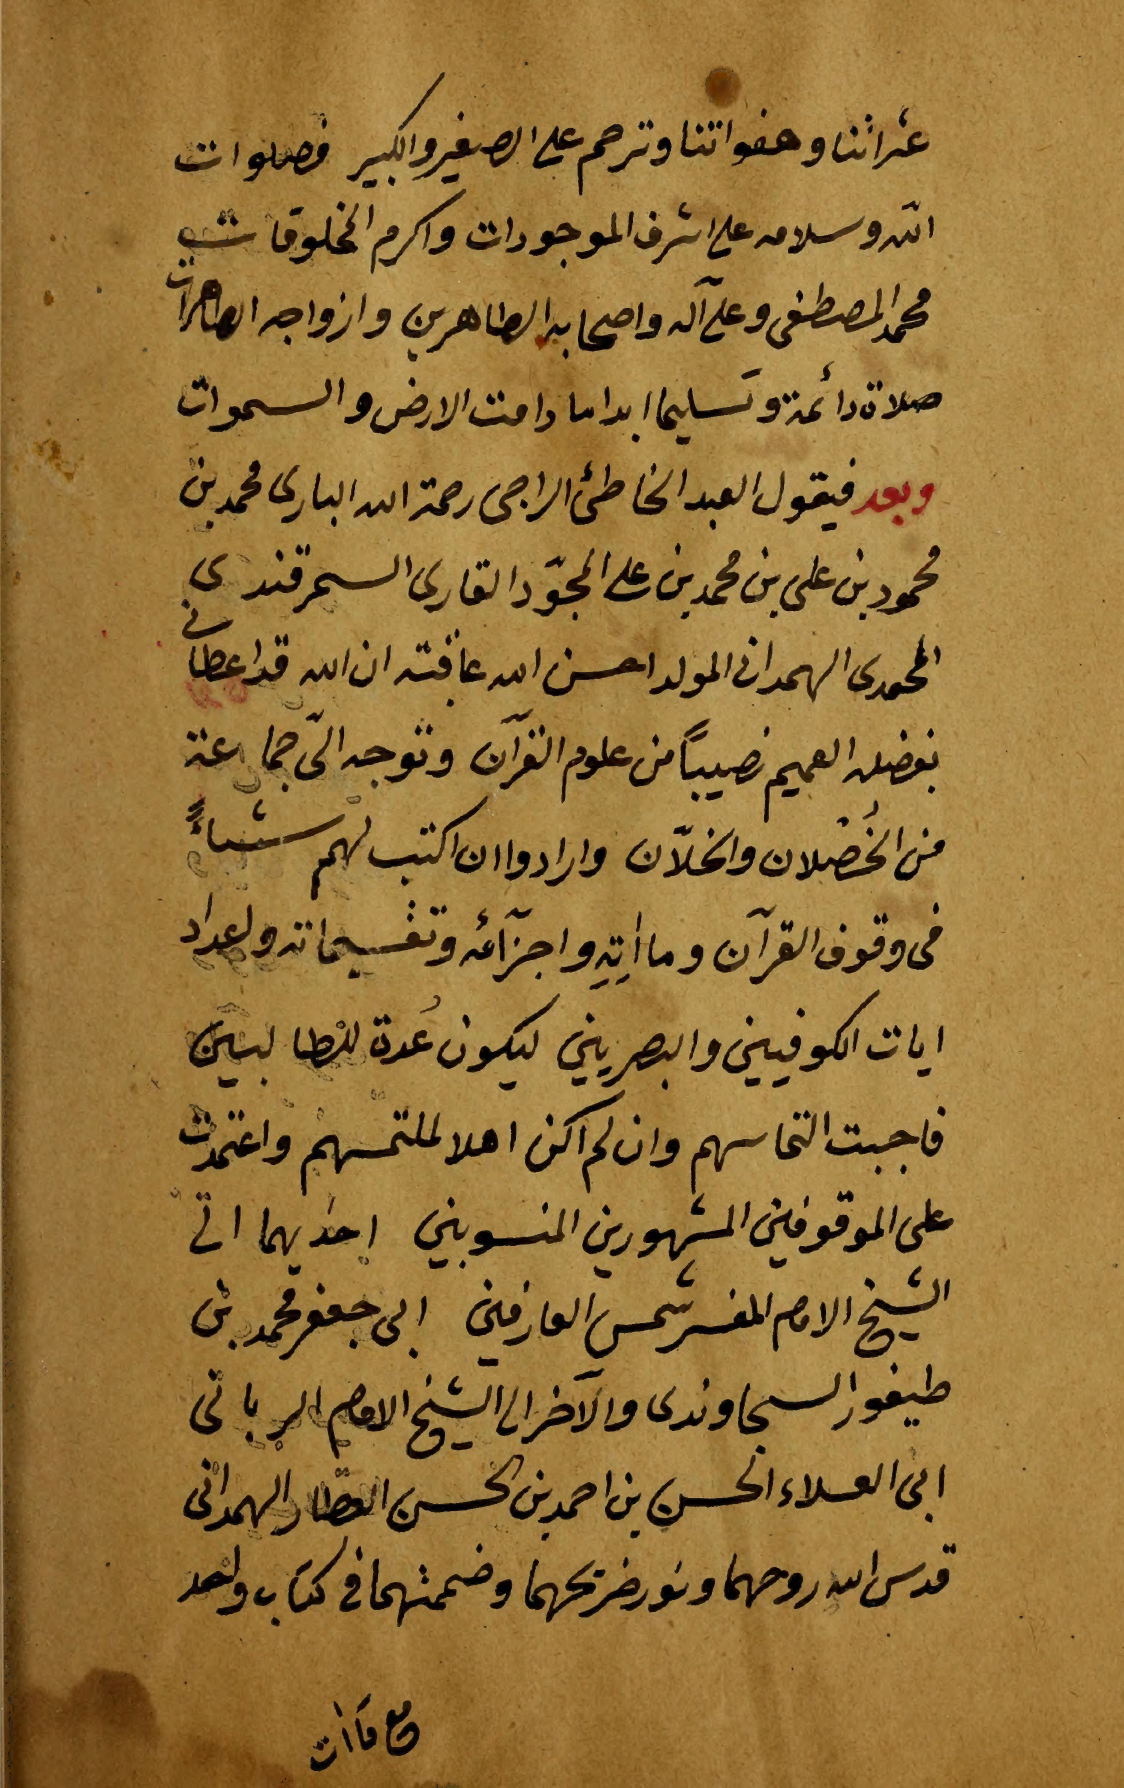 عثراتنا وهفواتنا وترحم على الصغير والكبير فصلوات
الله وسلامه على اشرف الموجودات واكرم المخلوقات
محمد المصطفى وعلى آله واصحابه الطاهرين وازواجه الطاهرات
صلاة دائمة وتسليما ابدا ما دامت الارض والسموات
وبعد فيقول العبد الخاطئ الراجى رحمة الله البارى محمد بن
محمود بن على بن محمد بن على المجوّد القارى السمرقندى
المحمدى الهمدانى المولد احسن الله عاقبته ان الله قد اعطانى
بفضله العميم نصيباً من علوم القرآن وتوجه الىّ جماعة
من الخُصْلان والخلاّن وارادوا ان اكتب لهم شياءً
فى وقوف القرآن وماٰاتِهِ واجزآئه وتقسيماته واعداد
ايات الكوفيين والبصريين ليكون عُدة للطالبين
فاجبت التماسهم وان لم اكن اهلا لملتمسهم واعتمدت
على الموقوفين المشهورين المنسوبين احديهما الى
الشيخ الامام المفسر شمس العارفين ابى جعفر محمد بن
طيفور السجاوندى والآخر الى الشيخ الامام الربانى
ابى العلاء الحسن بن احمد بن الحسن العطّار الهمدانى
قدس الله روحهما ونور ضريحهما وضممتهما فى كتاب واحد
مع مآات